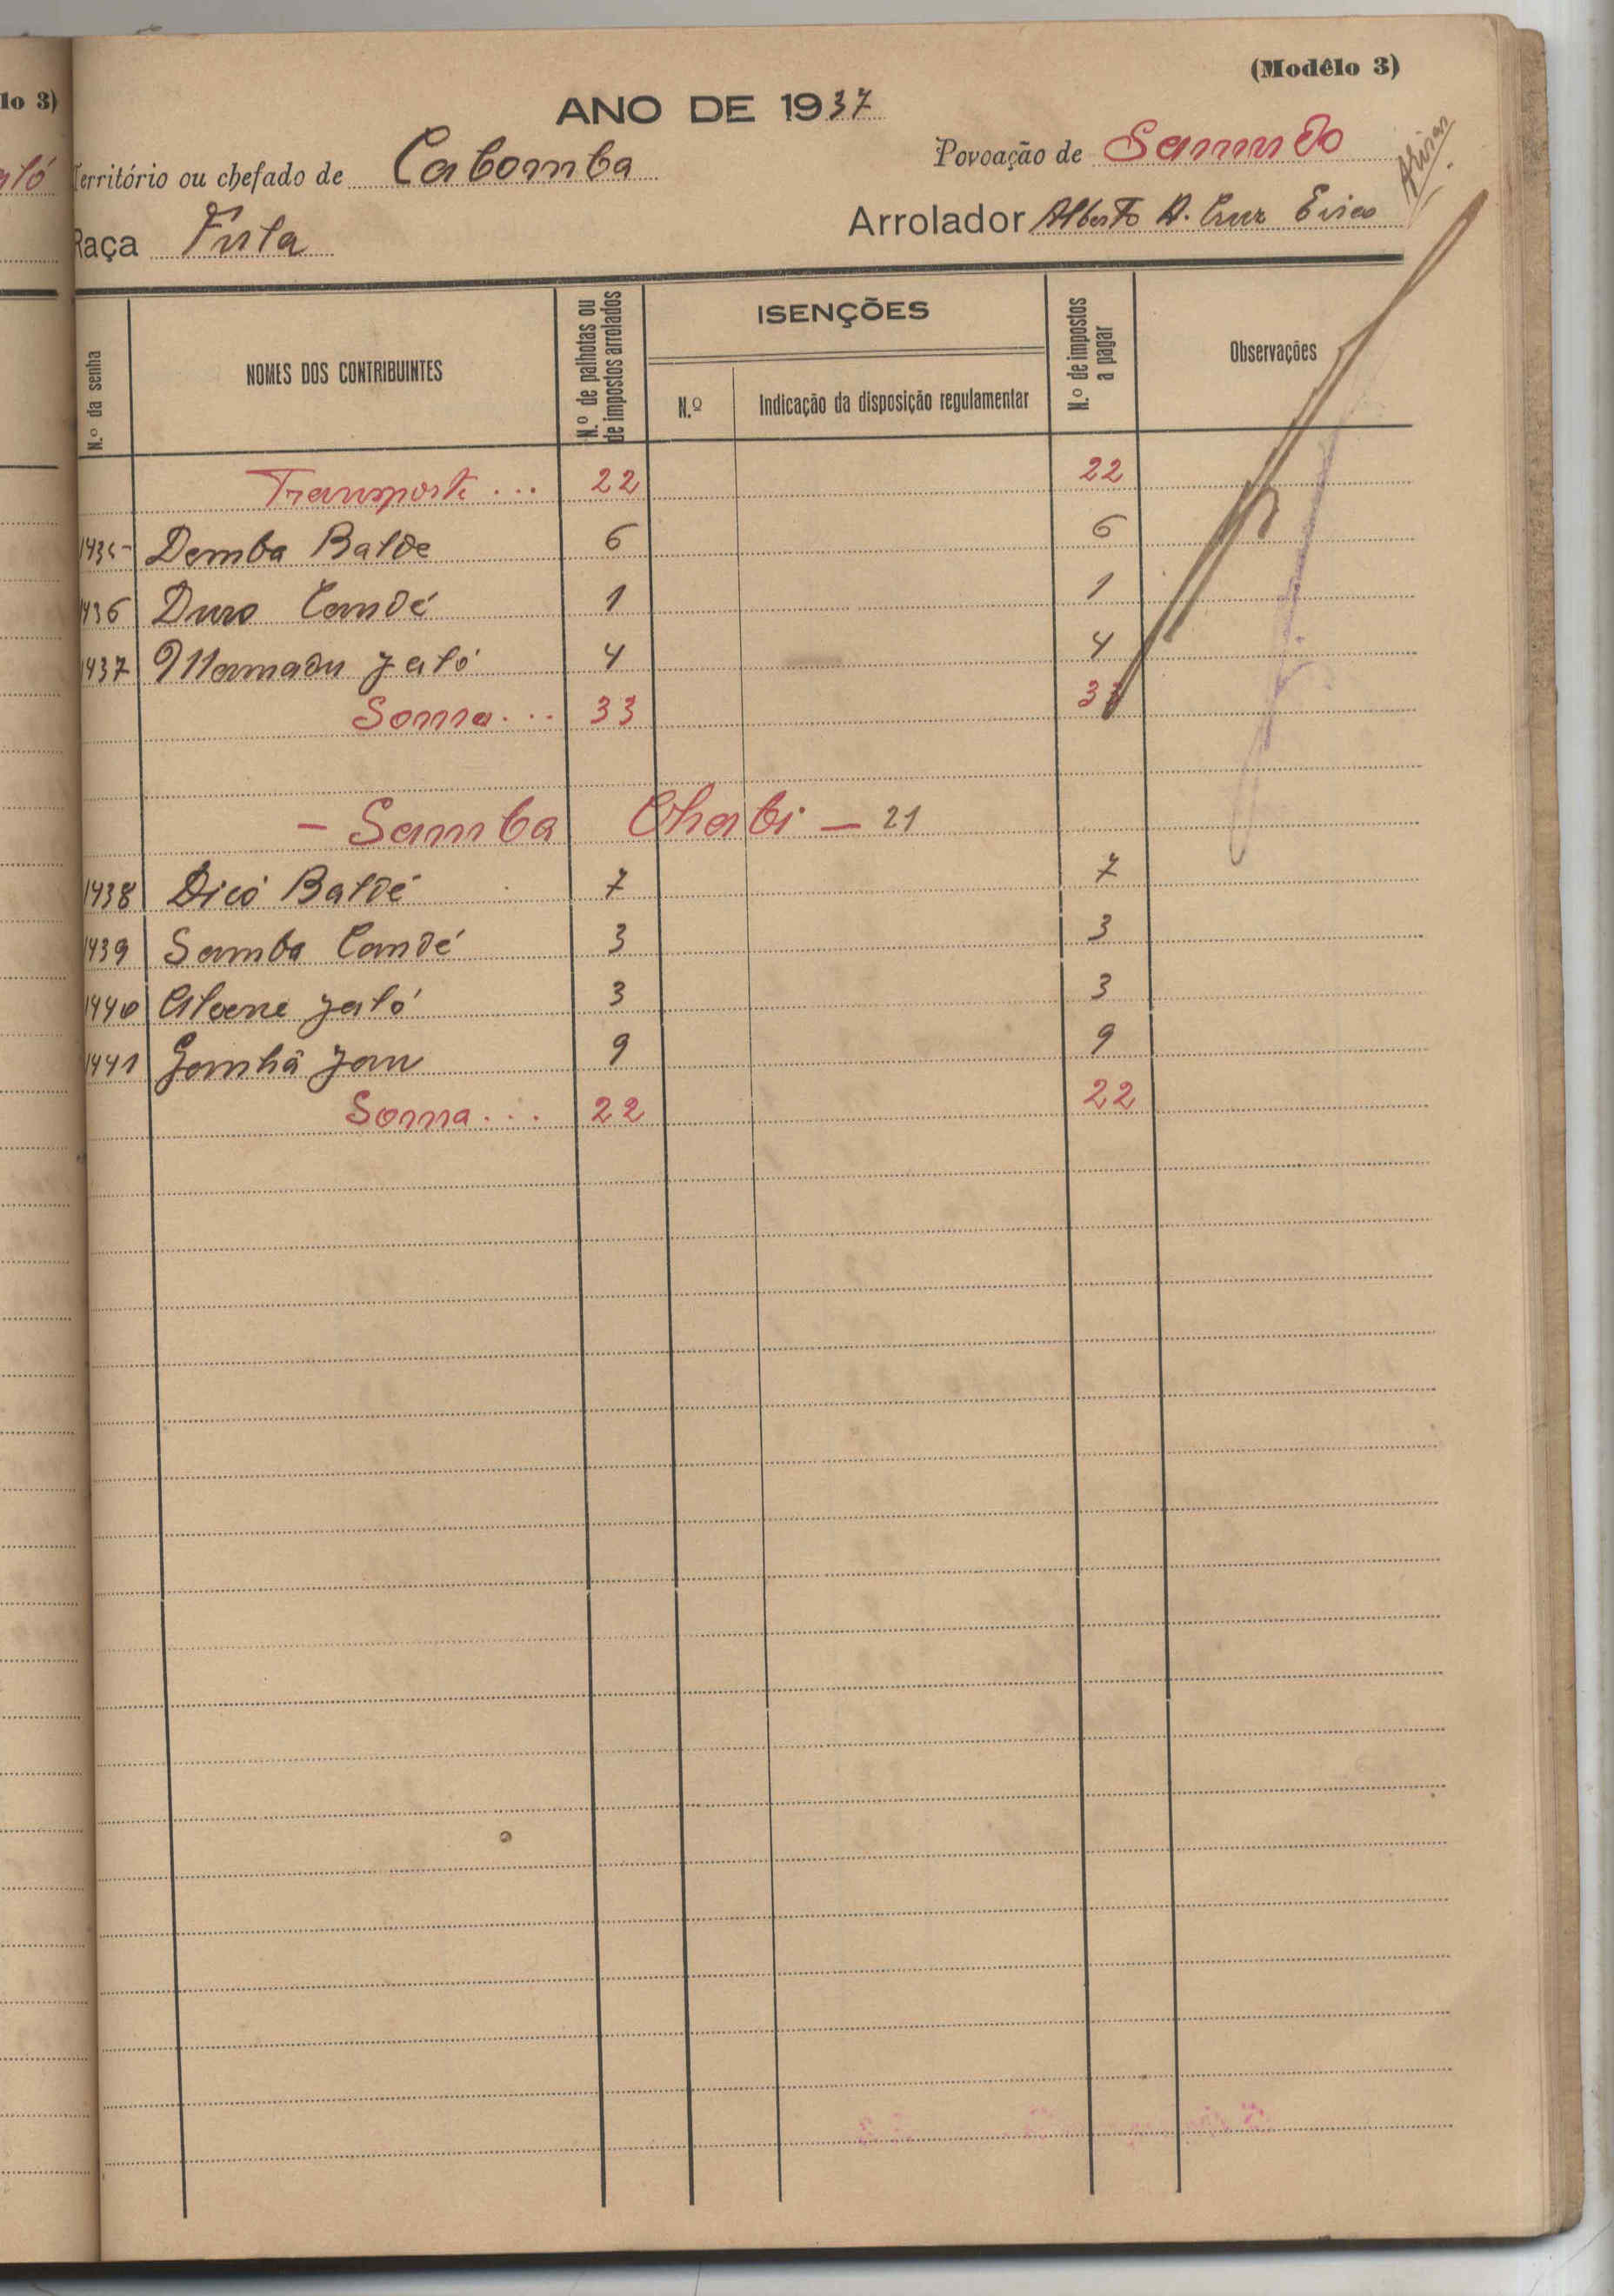 lo 3)
(Modêlo 3)
ANO DE 1937
Território ou chefado de Cabomba
Povoação de Samudo
Raça Fula
Arrolador Alberto A. Cruz
N.º da senha
NOMES DOS CONTRIBUINTES
N.º de palhotas ou de impostos arrolados
ISENÇÕES
N.º
Indicação da disposição regulamentar
N.º de impostos a pagar
Observações
Transporte ... 22 22
1435 Demba Balde 6 6
1436 Duro Candé 1 1
1437 Mamadu Jaló 4 4
Soma ... 33 33
- Samba Chabi - 21
1438 Dicó Baldé 7 7
1439 Samba Candé 3 3
1440 Jaló 3 3
1441 Jau 9 9
Soma ... 22 22